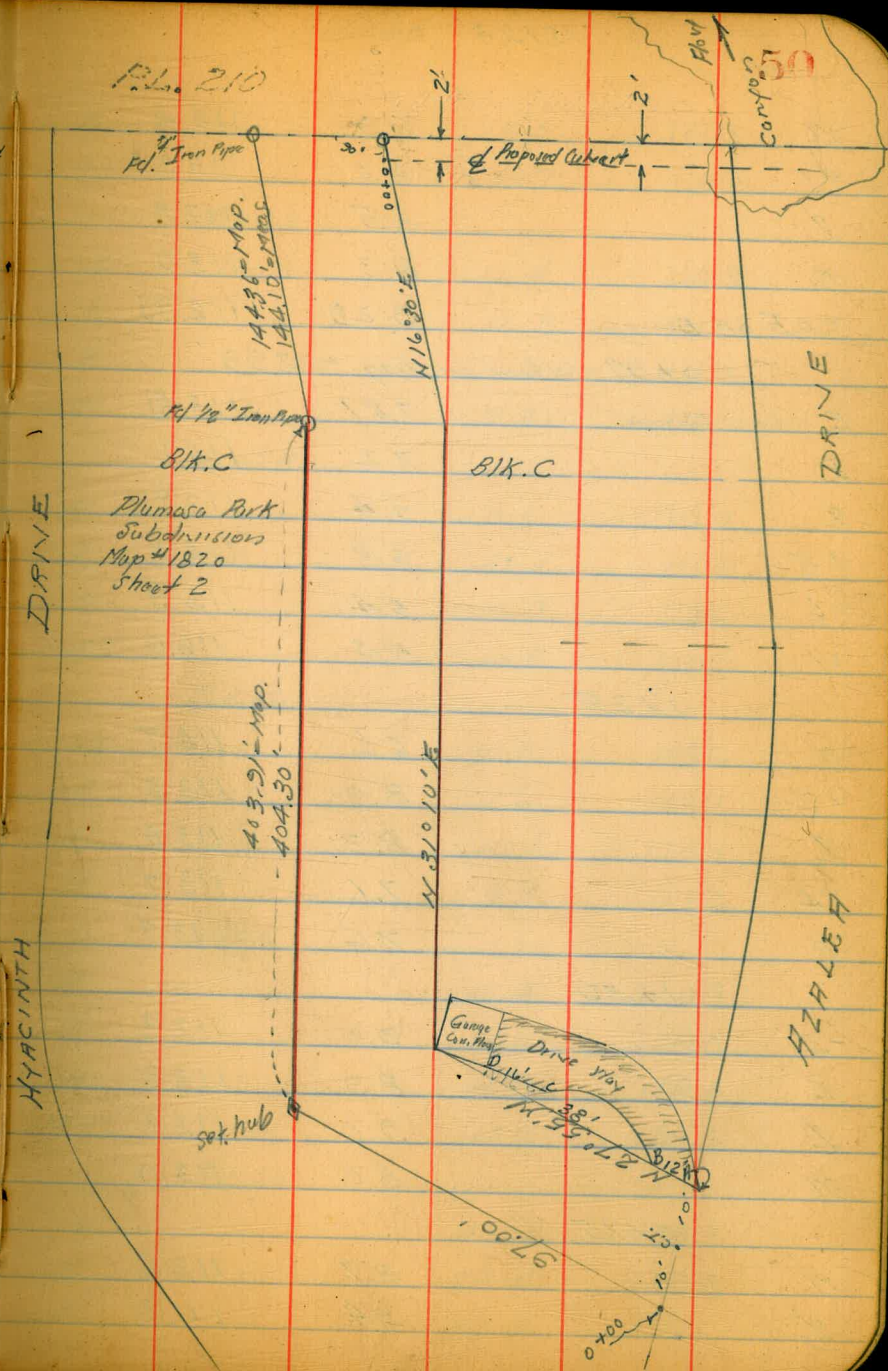 50
P.L. 210
2'
2'
Flow
Canyon
Fd. 3/4" Iron Pipe
30'
0+00
℄ Proposed Culvert
144.36'=Map.
144.10'=Meas.
N16°30'E
Fd 1/2" Iron Pipe
Blk.C
Blk.C
Plumosa Park
Subdivision
Map #1820
Sheet 2
DRIVE
DRIVE
403.91'=Map.
404.30'
N 31°10'E
HYACINTH
AZALEA
Garage
Con. Floor
Drive Way
D 16' C
38'
N 27°55'W
B 12' A
set hub
97.00'
10'
C.T.
10'
0+00